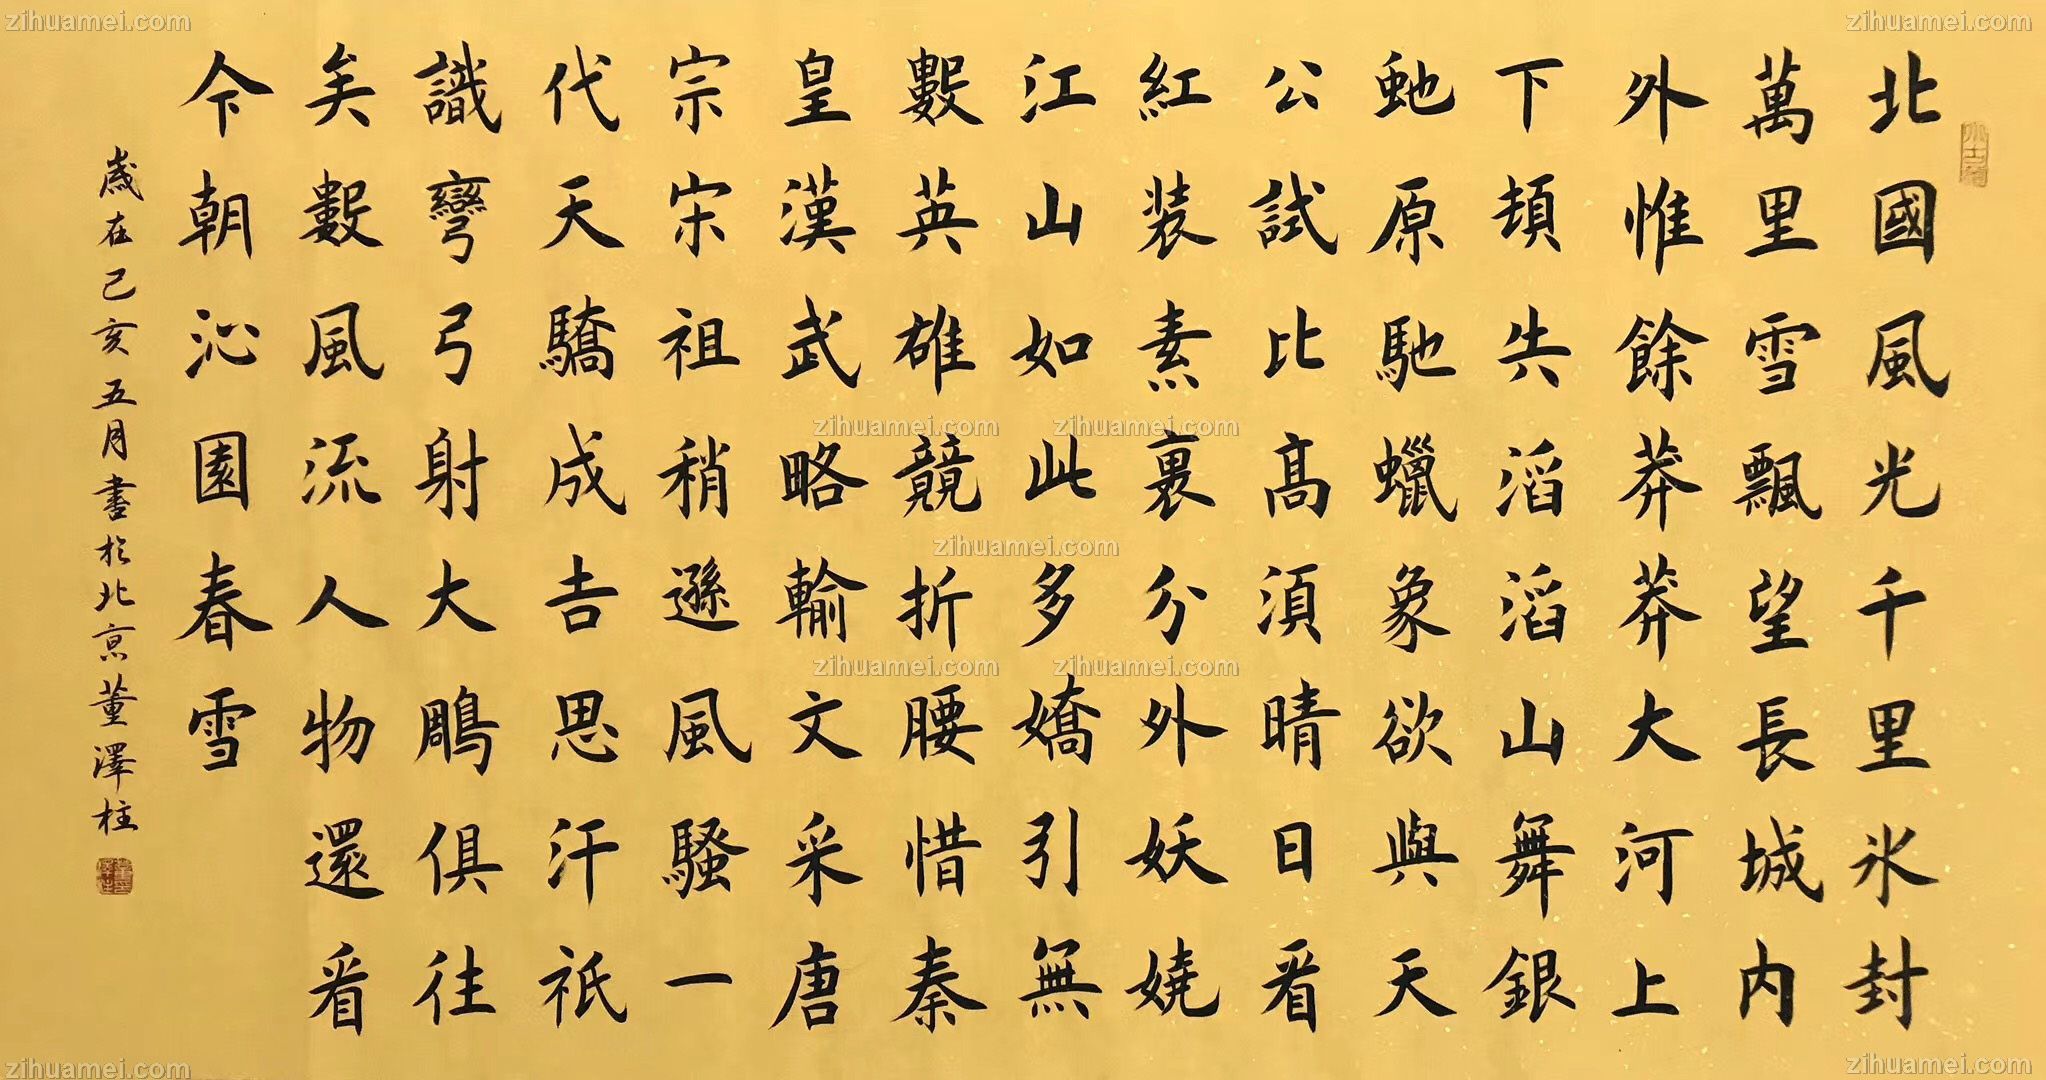 zihuamei.com
zihuamei.com
北國風光千里氷封
萬里雪飄望長城内
外惟餘莽莽大河上
下頓失滔滔山舞銀
虵原馳蠟象欲與天
公試比髙須晴日看
紅装素裹分外妖嬈
江山如此多嬌引無
數英雄競折腰惜秦
皇漢武略輸文采唐
宗宋祖稍遜風騷一
代天驕成吉思汗祇
識彎弓射大鵰俱往
矣數風流人物還看
今朝沁園春雪
歲在己亥五月書於北京董澤柱
zihuamei.com
zihuamei.com
zihuamei.com
zihuamei.com
zihuamei.com
zihuamei.com
zihuamei.com